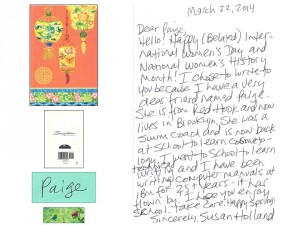 March 22, 2014
Dear Paige,
Hello! Happy (Belated) Inter-
national Women's Day and
National Women's History
Month! I chose to write to
you because I have a very
dear friend named Paige.
She is from Red Hook and now
lives in Brooklyn. She was a
Swim Coach and is now back
at school to learn cosmeto-
logy. I went to school to learn
technical
writing and I have been
writing computer manuals at
IBM for 25+ years - it has
flown by. I hope you enjoy
school. Take care. Happy Spring!
Sincerely, Susan Holland
Paige